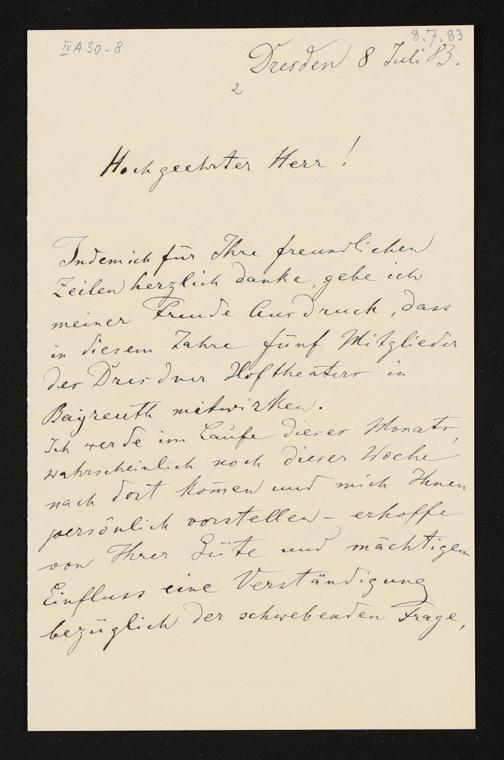 IV A 30-8
8.7.83
Dresden 8 Juli 83.
2
Hochgeehrter Herr!
Indem ich für Ihre freundlichen
Zeilen herzlich danke, gebe ich
meiner Freude Ausdruck, dass
in diesem Jahre fünf Mitglieder
des Dresdner Hoftheaters in
Bayreuth mitwirken.
Ich werde im Laufe dieses Monats,
wahrscheinlich noch dieser Woche
nach dort kom̅en und mich Ihnen
persönlich vorstellen – erhoffe
von Ihrer Güte und mächtigem
Einfluss eine Verständigung
bezüglich der schwebenden Frage,